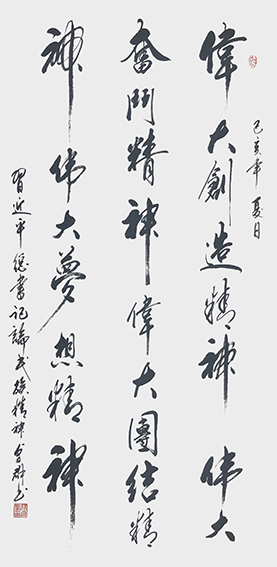 己亥年夏日
偉大創造精神伟大
奮鬥精神偉大團结精
神伟大夢想精神
習近平總書記論民族精神书